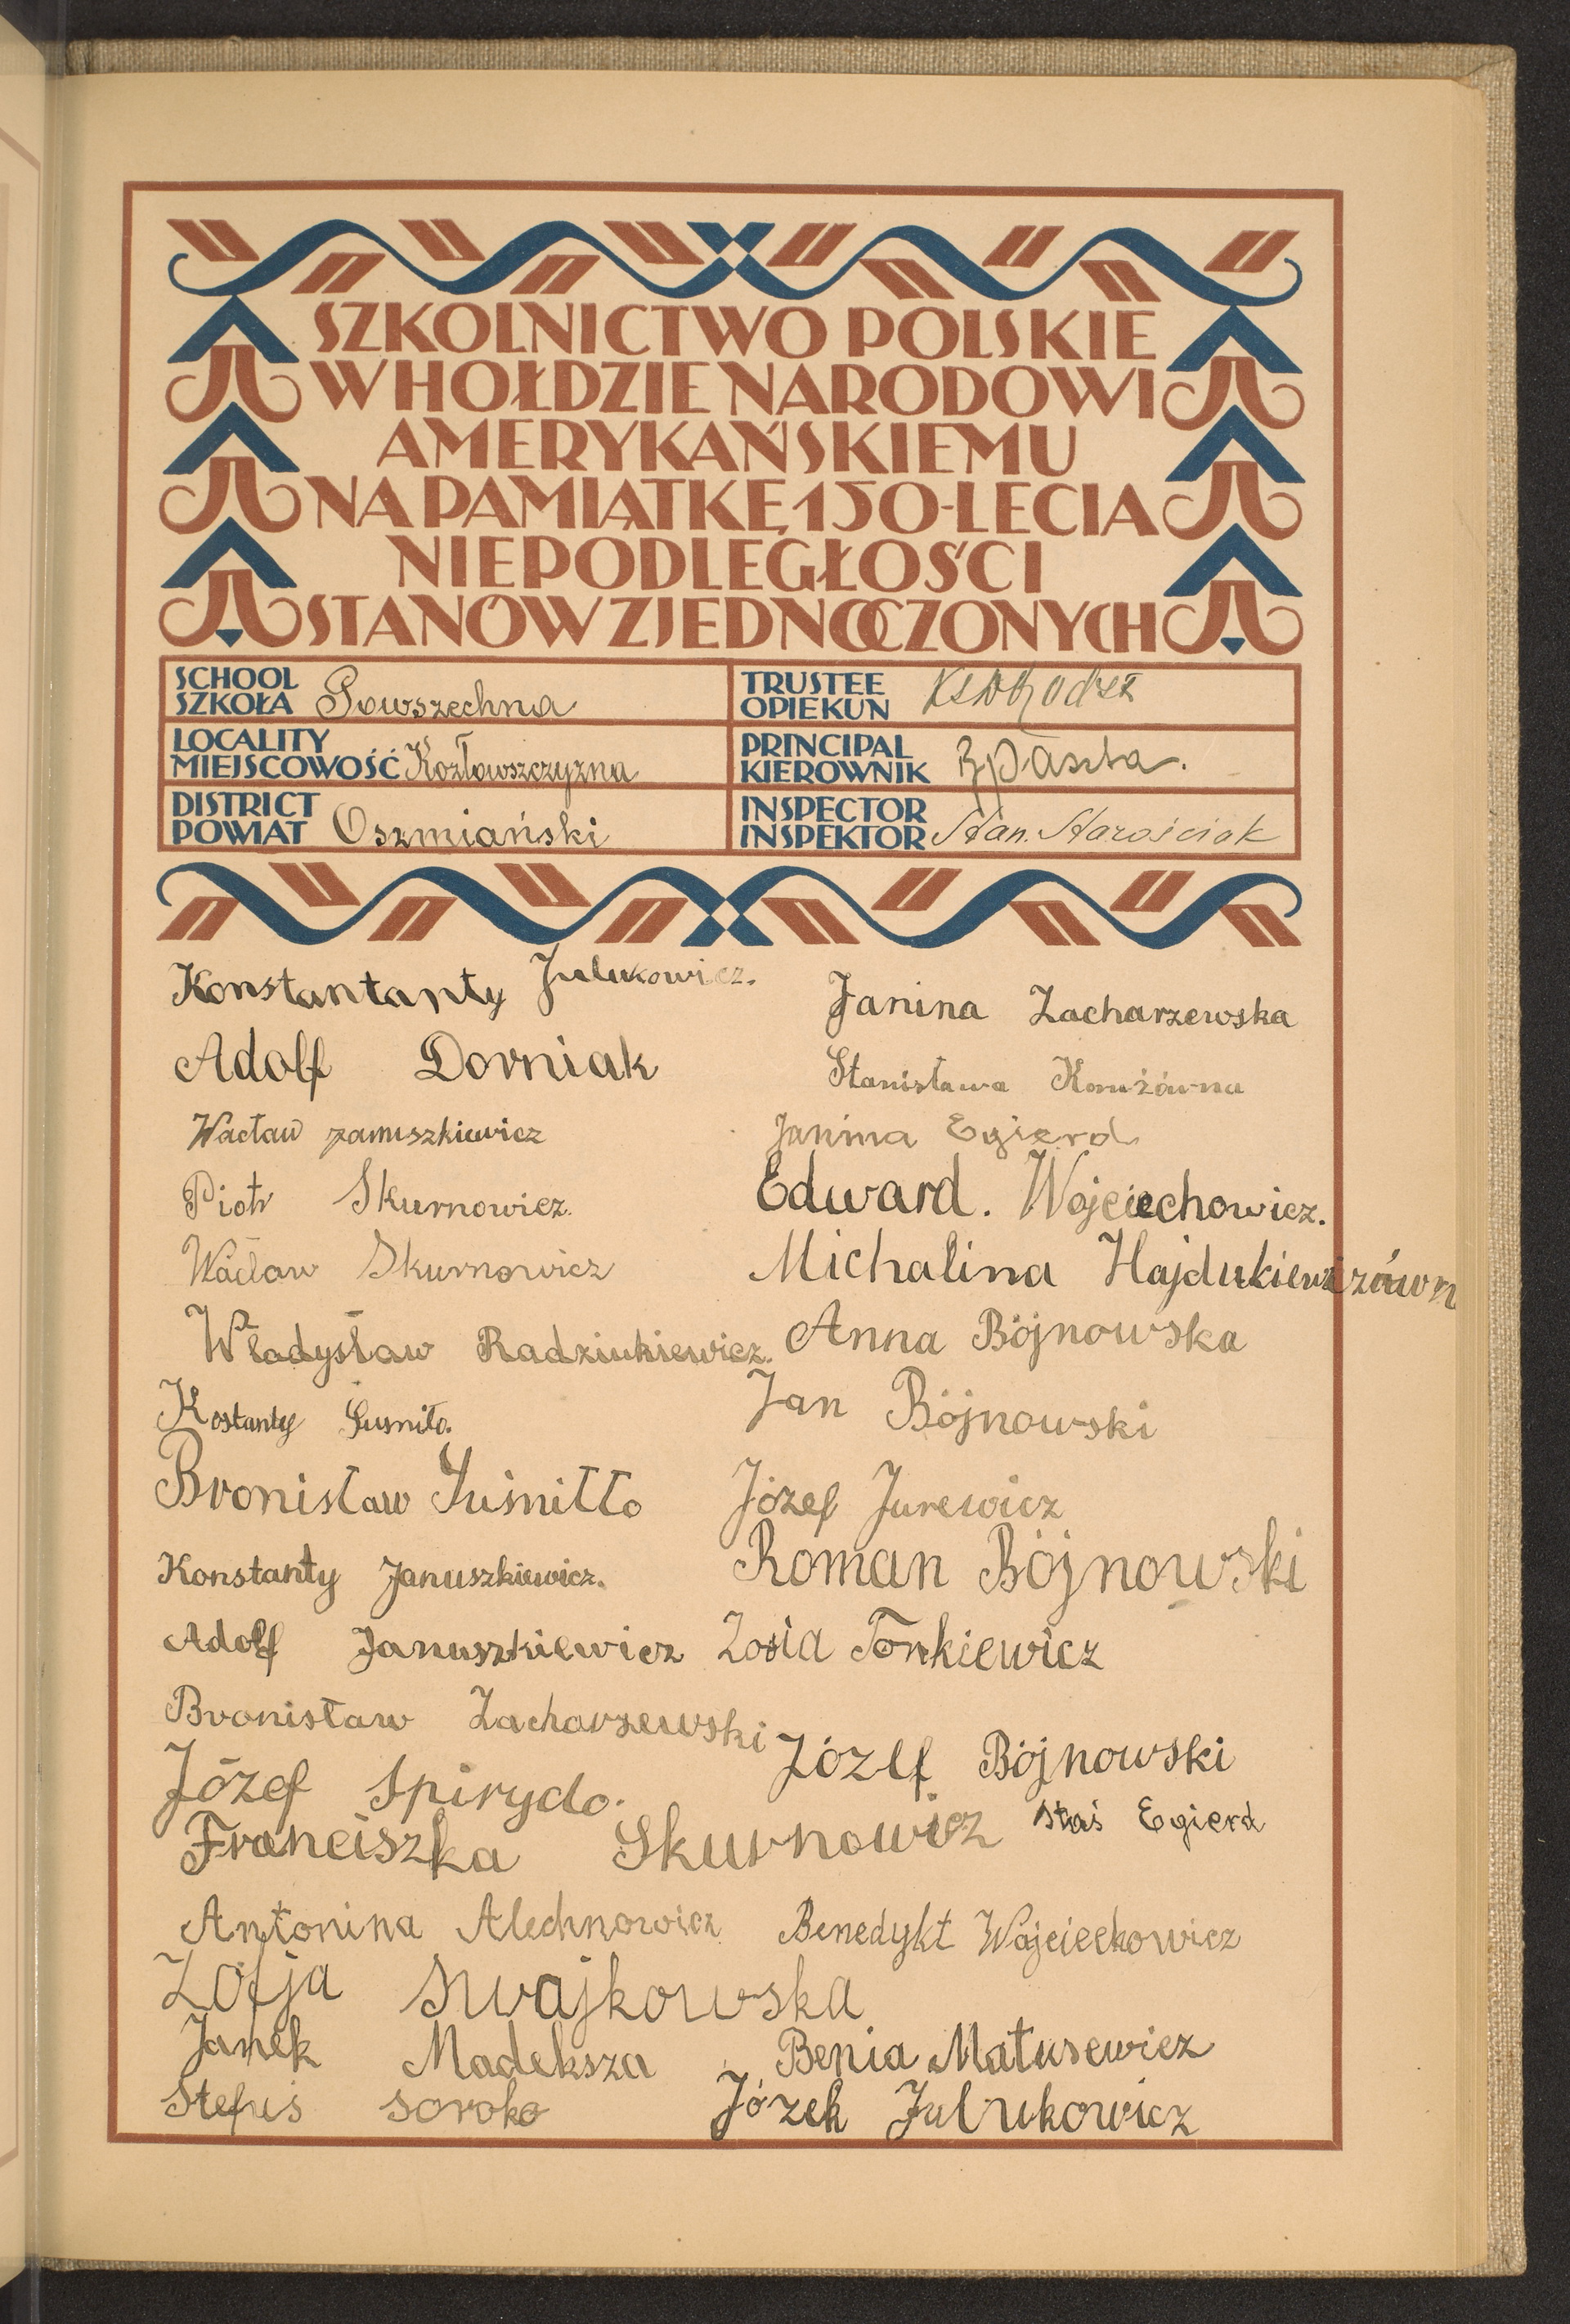 SZKOLNICTWO POLSKIE
W HOŁDZIE NARODOWI
AMERYKAŃSKIEMU
NA PAMIĄTKĘ 150-LECIA
NIEPODLEGŁOŚCI
STANÓW ZJEDNOCZONYCH
SCHOOL
SZKOŁA Powszechna
TRUSTEE
OPIEKUN
LOCALITY
MIEJSCOWOŚĆ Kozłowszczyzna
PRINCIPAL
KIEROWNIK
DISTRICT
POWIAT Oszmiański
INSPECTOR
INSPEKTOR Stan. Starościak
Konstantanty Julukowicz.
Adolf Dorniak
Wacław januszkiewicz
Piotr Skurnowicz.
Wacław Skurnowicz
Władysław Radziukiewicz.
Kostanty Suśniło.
Bronisław Juśniłło
Konstanty Januszkiewicz.
Adolf Januszkiewicz
Bronisław Zacharzewski
Józef Spirydo.
Franciszka Skurnowicz
Antonina Alechnowicz
Zofja Swajkowska
Janek Madeksza
Stefuś soroko
Janina Zacharzewska
Stanisława
Janina Egierd
Edward. Wojciechowicz.
Michalina Hajdukiewiczówn
Anna Bójnowska
Jan Bójnowski
Józef Jurewicz
Roman Bójnowski
Zosia Tonkiewicz
Józef Bójnowski
Staś Egierd
Benedykt Wojciechowicz
Benia Matusewicz
Józek Julukowicz